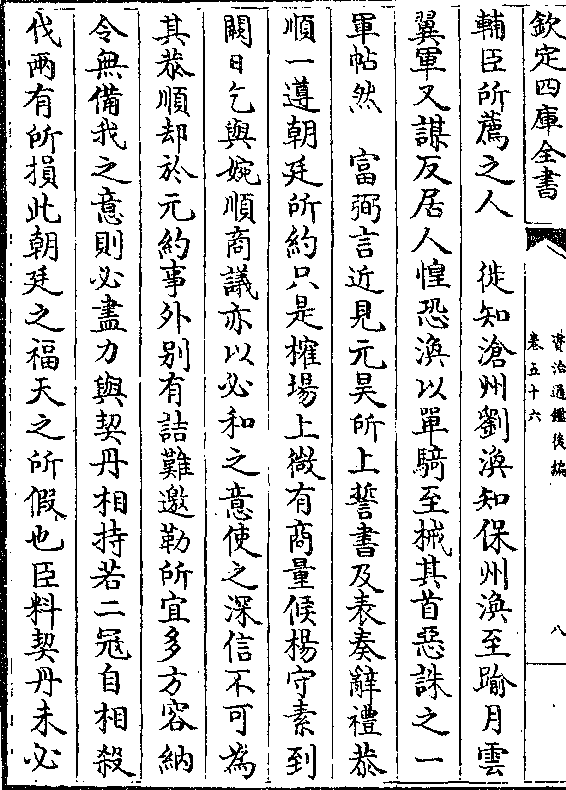 欽定四庫全書
資治通鑑後編
卷五十六
八
輔臣所薦之人　徙知滄州劉渙知保州渙至踰月雲
翼軍又謀反居人惶恐渙以單騎至械其首惡誅之一
軍帖然　富弼言近見元昊所上誓書及表奏辭禮恭
順一遵朝廷所約只是榷場上微有商量候楊守素到
闕日乞與婉順商議亦以必和之意使之深信不可為
其恭順却於元約事外别有詰難邀勒所宜多方容納
令無備我之意則必盡力與契丹相持若二冦自相殺
伐兩有所損此朝廷之福天之所假也臣料契丹未必